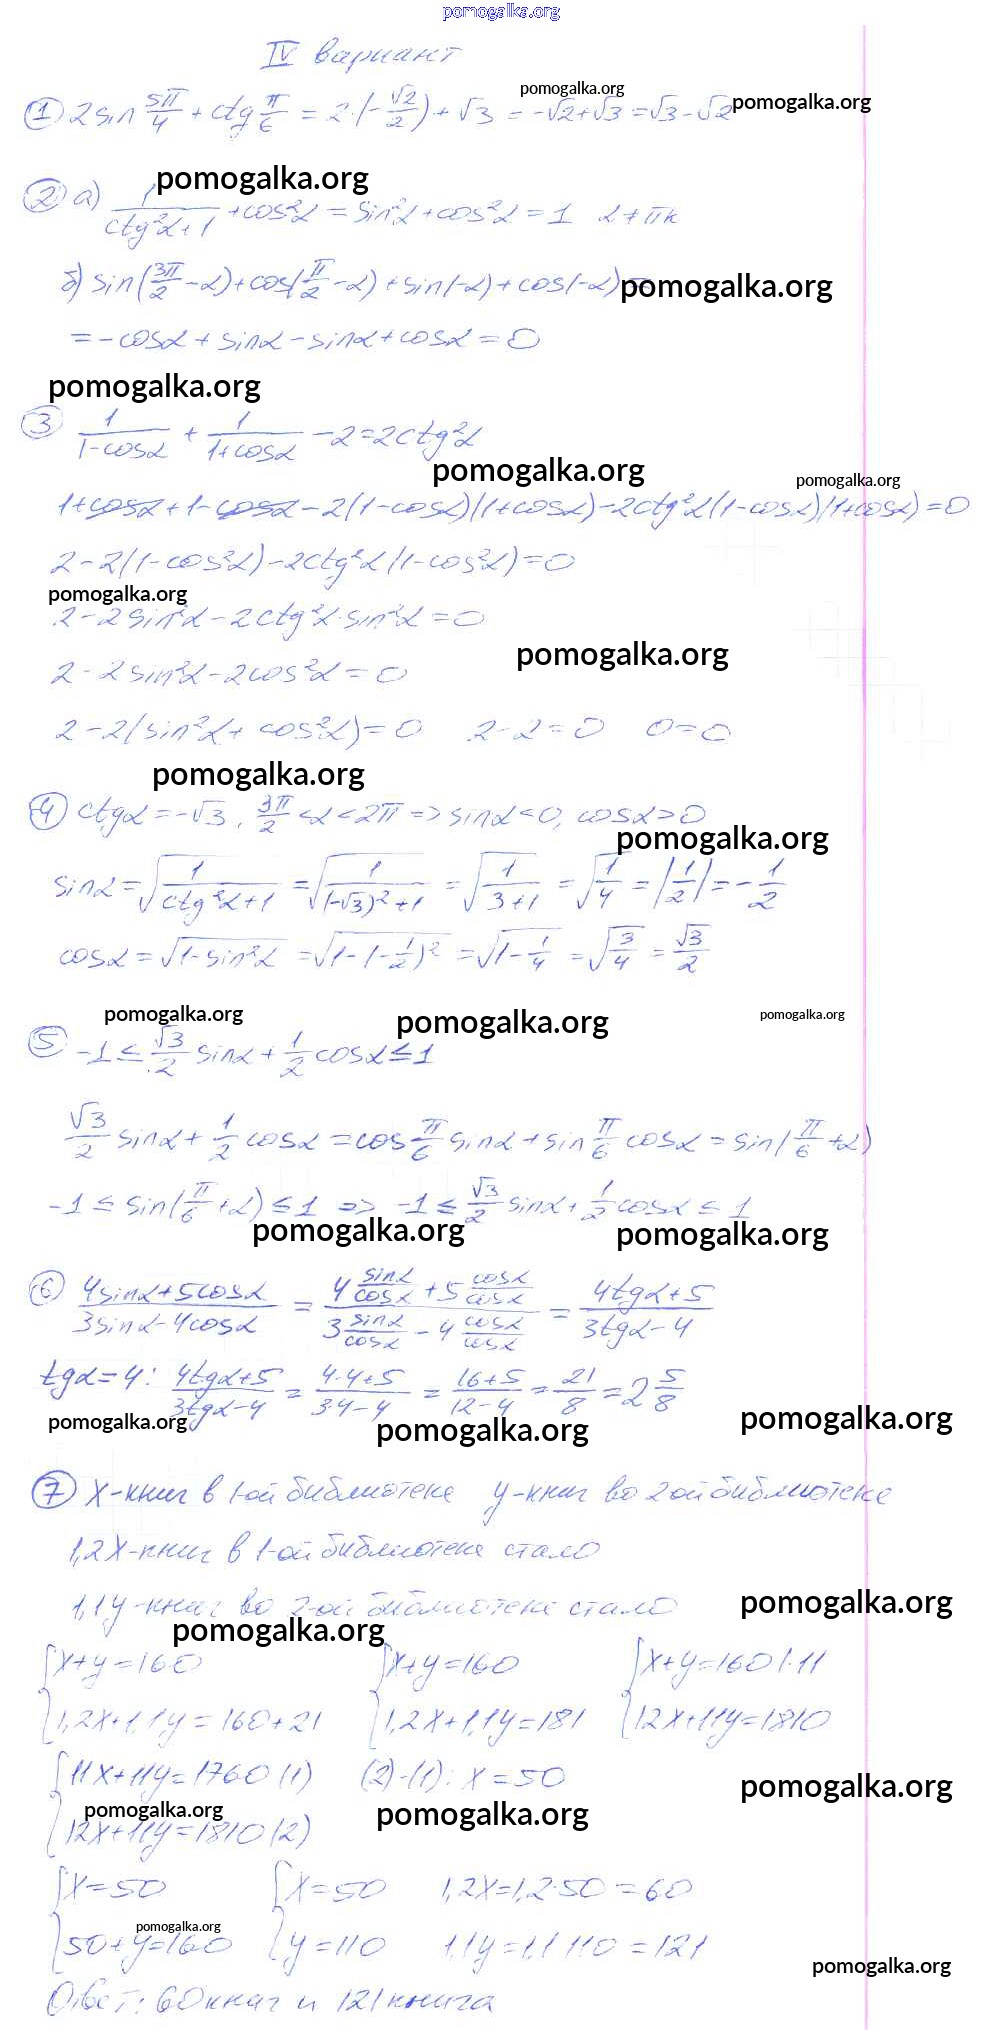 pomogalka.org
IV вариант
① 2sin 5π/4 + ctg π/6 = 2·(-√2/2) + √3 = -√2+√3 = √3-√2
pomogalka.org
pomogalka.org
pomogalka.org
② а) 1/(ctg²α+1) + cos²α = sin²α + cos²α = 1 α ≠ πk
б) sin(3π/2 - α) + cos(π/2 - α) + sin(-α) + cos(-α) =
pomogalka.org
= -cosα + sinα - sinα + cosα = 0
pomogalka.org
③ 1/(1-cosα) + 1/(1+cosα) - 2 = 2ctg²α
pomogalka.org
pomogalka.org
1+cosα+1-cosα-2(1-cosα)(1+cosα)-2ctg²α(1-cosα)(1+cosα)=0
2-2(1-cos²α)-2ctg²α(1-cos²α)=0
pomogalka.org
2-2sin²α-2ctg²α·sin²α=0
pomogalka.org
2-2sin²α-2cos²α=0
2-2(sin²α+cos²α)=0 2-2=0 0=0
pomogalka.org
④ ctgα=-√3, 3π/2<α<2π => sinα<0, cosα>0
pomogalka.org
sinα = √(1/(ctg²α+1)) = √(1/((-√3)²+1)) = √(1/(3+1)) = √(1/4) = |1/2| = -1/2
cosα = √(1-sin²α) = √(1-(-1/2)²) = √(1-1/4) = √(3/4) = √3/2
pomogalka.org
pomogalka.org
pomogalka.org
⑤ -1 ≤ √3/2 sinα + 1/2 cosα ≤ 1
√3/2 sinα + 1/2 cosα = cos π/6 sinα + sin π/6 cosα = sin(π/6 + α)
-1 ≤ sin(π/6 + α) ≤ 1 => -1 ≤ √3/2 sinα + 1/2 cosα ≤ 1
pomogalka.org
pomogalka.org
⑥ (4sinα+5cosα)/(3sinα-4cosα) = (4 sinα/cosα + 5 cosα/cosα)/(3 sinα/cosα - 4 cosα/cosα) = (4tgα+5)/(3tgα-4)
tgα=4: (4tgα+5)/(3tgα-4) = (4·4+5)/(3·4-4) = (16+5)/(12-4) = 21/8 = 2 5/8
pomogalka.org
pomogalka.org
pomogalka.org
⑦ x-книг в 1-ой библиотеке y-книг во 2ой библиотеке
1,2x-книг в 1-ой библиотеке стало
1,1y-книг во 2-ой библиотеке стало
pomogalka.org
pomogalka.org
{x+y=160 {x+y=160 {x+y=160 |·11
{1,2x+1,1y=160+21 {1,2x+1,1y=181 {12x+11y=1810
{11x+11y=1760 (1) (2)-(1): x=50
pomogalka.org
pomogalka.org
pomogalka.org
{12x+11y=1810 (2)
{x=50 {x=50 1,2x=1,2·50=60
pomogalka.org
{50+y=160 {y=110 1,1y=1,1·110=121
pomogalka.org
Ответ: 60 книг и 121 книга